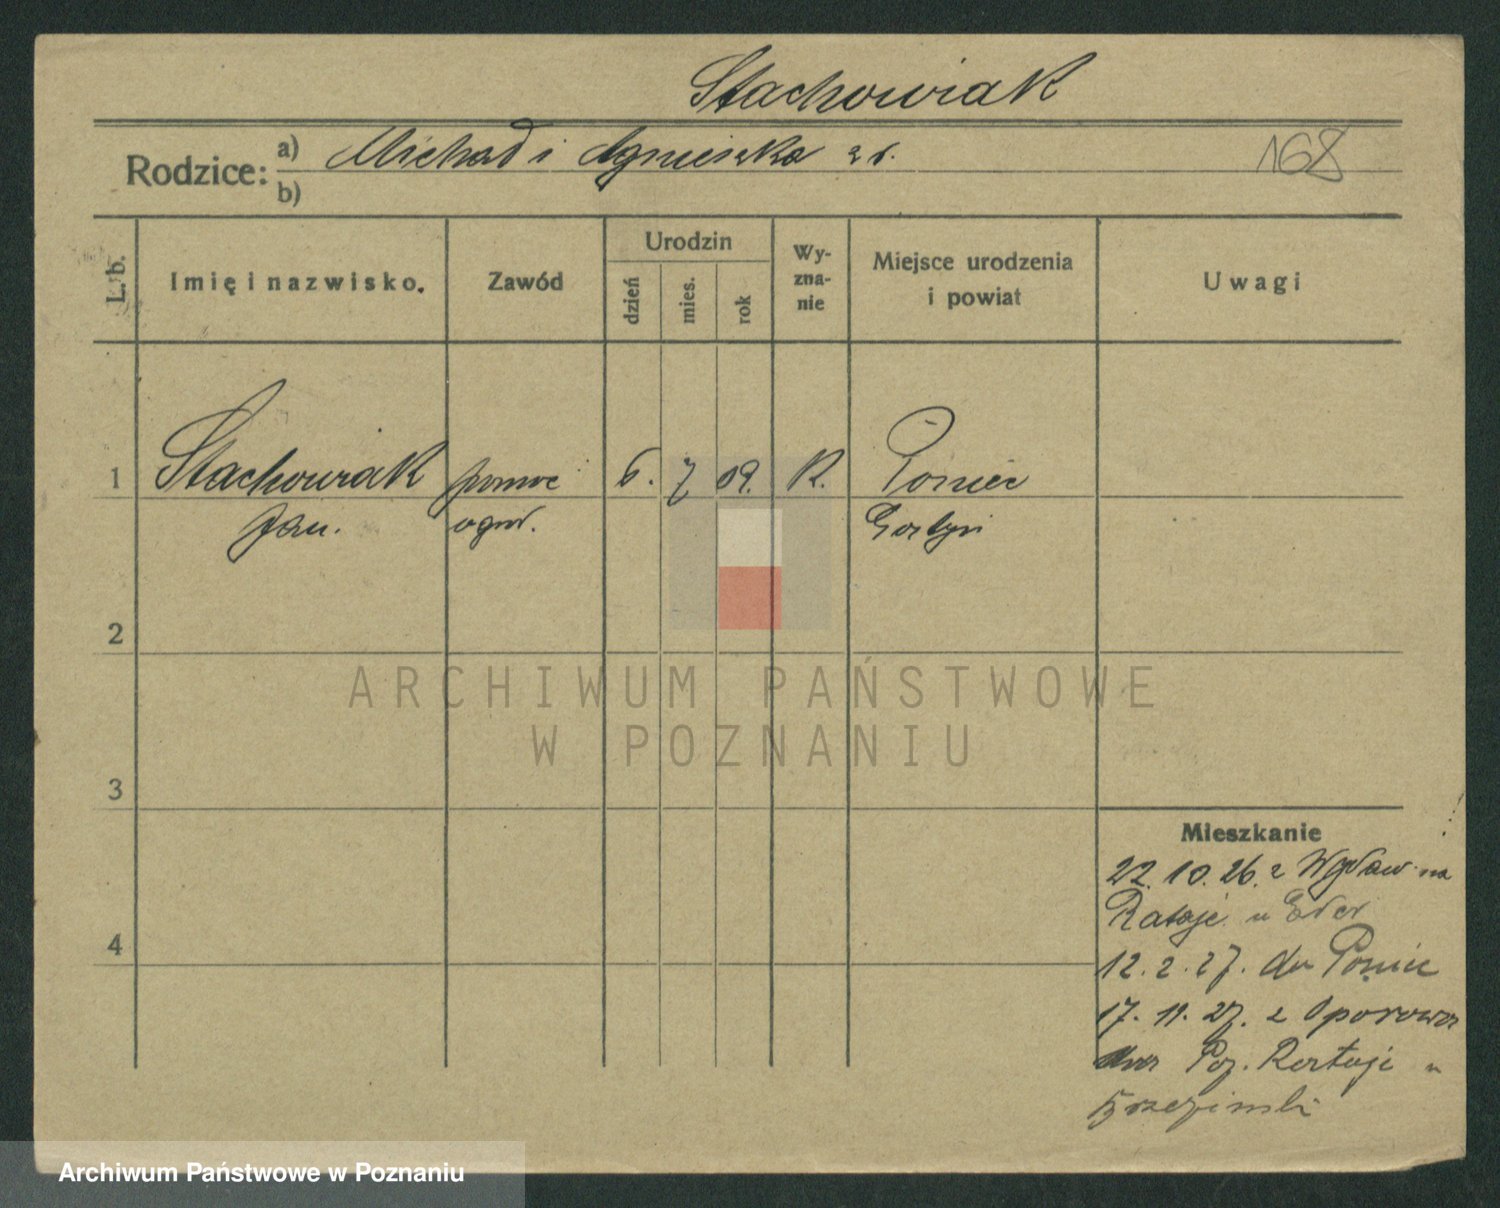 Stachowiak
Rodzice: a) Michał i Agnieszka
b)
168
L. b.
Imię i nazwisko.
Zawód
Urodzin
dzień
mies.
rok
Wy-
zna-
nie
Miejsce urodzenia
i powiat
Uwagi
1
Stachowiak pomoc 6. 7 09. R. Poniec
Jan. ogrod. Gostyń
2
3
4
ARCHIWUM PAŃSTWOWE
W POZNANIU
Mieszkanie
22.10.26. z na
Rataje u
12.2.27. do Poniec
17.11.27. z Oporowa
Poz. Rataje u
Archiwum Państwowe w Poznaniu